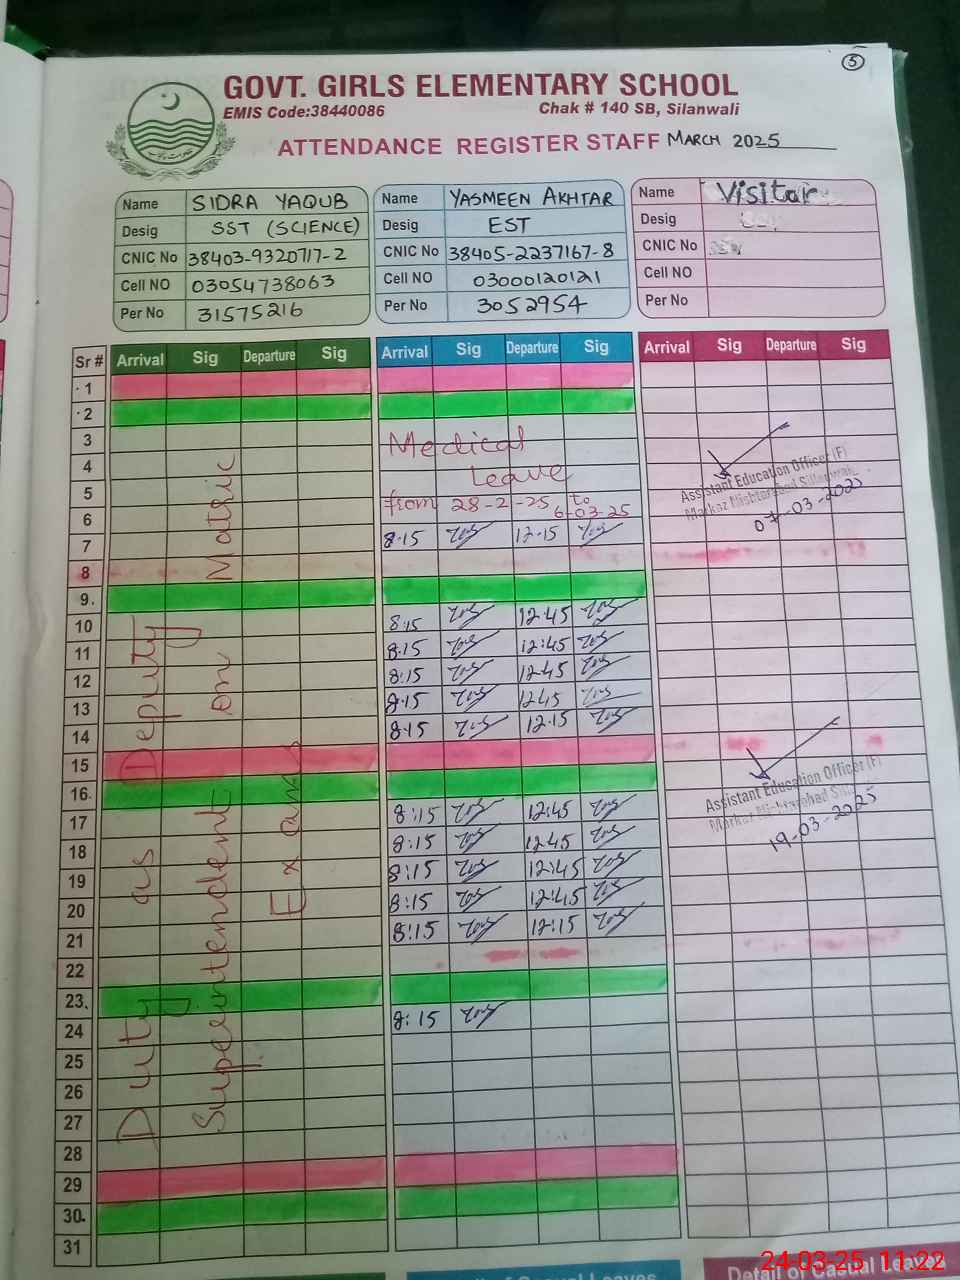 5
GOVT. GIRLS ELEMENTARY SCHOOL
EMIS Code:38440086 Chak # 140 SB, Silanwali
ATTENDANCE REGISTER STAFF MARCH 2025
Name SIDRA YAQUB
Desig SST (SCIENCE)
CNIC No 38403-9320717-2
Cell NO 03054738063
Per No 31575216
Name YASMEEN AKHTAR
Desig EST
CNIC No 38405-2237167-8
Cell NO 03000120121
Per No 3052954
Name Visitar
Desig
CNIC No
Cell NO
Per No
Sr # Arrival Sig Departure Sig Arrival Sig Departure Sig Arrival Sig Departure Sig
1
2
3 Medical
4 Leave
5 from 28-2-25 to
6 6-03-25
7 8·15 12-15
8
9.
10 8:15 12:45
11 8:15 12:45
12 8:15 12:45
13 8·15 12:45
14 8·15 12·15
15
16.
17 8:15 12:45
18 8:15 12:45
19 8:15 12:45
20 8:15 12:45
21 8:15 12:15
22
23.
24 8:15
25
26
27
28
29
30.
31
Duty as Deputy
Superintendent on Matric
Exams
Assistant Education Officer (F)
07-03-2025
Assistant Education Officer (F)
19-03-2025
of Casual Leaves
Detail of Casual Leaves
24-03-25 11:22